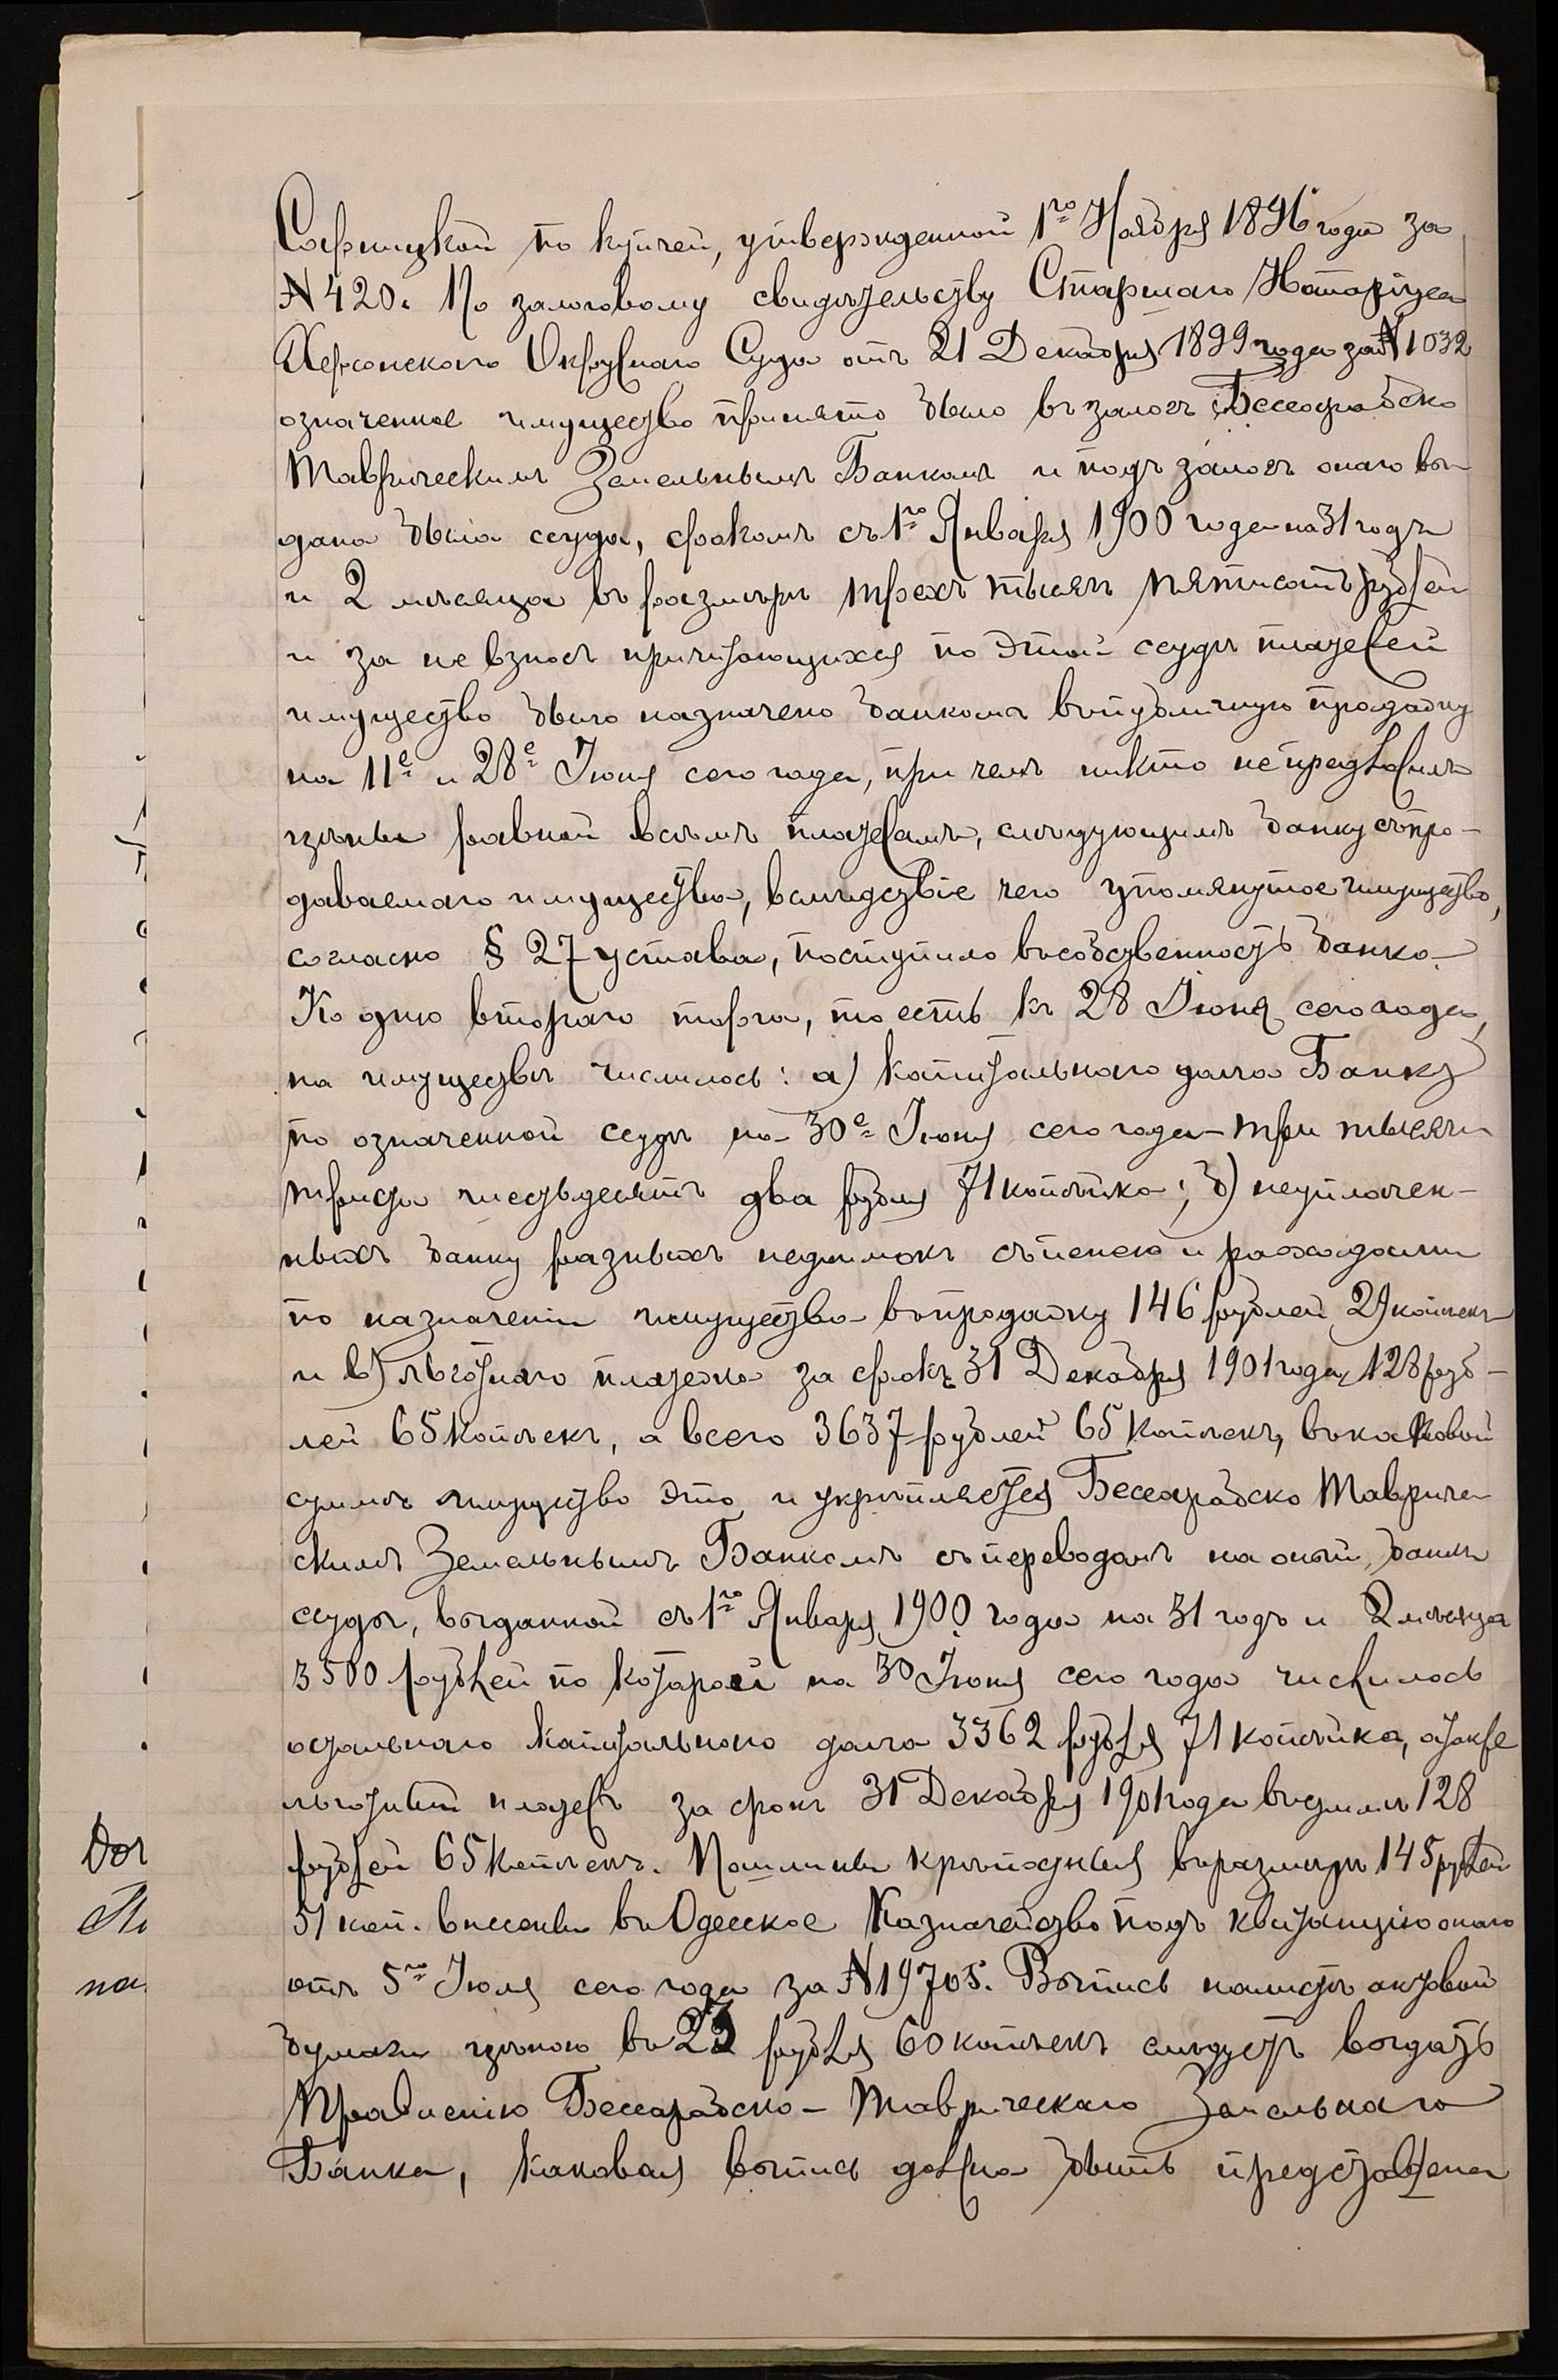 Сафицкой по купчей, утвержденной 1го Ноября 1896 года за
№ 420. По залоговому свидѣтельству Старшаго Нотаріуса
Херсонскаго Окружнаго Суда отъ 21 Декабря 1899 года за № 1032
означенное имущество принято было въ залогъ Бессарабско
Таврическимъ Земельнымъ Банкомъ и подъ залогъ онаго вы-
дана была ссуда, срокомъ съ 1го Января 1900 года на 31 годъ
и 2 мѣсяца въ размѣрѣ трехъ тысячъ пятисотъ рублей
и за не взносъ причитающихся по этой ссудѣ платежей
имущество было назначено банкомъ въ публичную продажу
на 11е и 28е Іюня сего года, при чемъ никто не предложилъ
цѣны равной всѣмъ платежамъ, слѣдующимъ банку съ про-
даваемаго имущества, вслѣдствіе чего упомянутое имущество,
согласно § 27 устава, поступило въ собственность банка.
Ко дню втораго торга, то есть къ 28 Іюня сего года,
на имуществѣ числилось: а) капитальнаго долга Банку
по означенной ссудѣ на 30е Іюня сего года - три тысячи
триста шестьдесятъ два рубля 71 копѣйка; б) неуплачен-
ныхъ банку разныхъ недоимокъ съ пенею и расходами
по назначенію имущества въ продажу 146 рублей 29 копѣекъ
и в) льготнаго платежа за срокъ 31 Декабря 1901 года 128 руб-
лей 65 копѣекъ, а всего 3637 рублей 65 копѣекъ, въ каковой
суммѣ имущество это и укрѣпляется Бессарабско Тавриче-
скимъ Земельнымъ Банкомъ съ переводомъ на оный банкъ
ссуды, выданной съ 1го Января 1900 года на 31 годъ и 2 мѣсяца
3500 рублей по которой на 30 Іюня сего года числилось
остальнаго капитальнаго долга 3362 рубля 71 копѣйка, а также
льготный платежъ за срокъ 31 Декабря 1901 года въ суммѣ 128
рублей 65 копѣекъ. Пошлины крѣпостныя въ размѣрѣ 145 рублей
51 коп. внесены въ Одесское Казначейство подъ квитанцію онаго
отъ 5го Іюля сего года за № 19705. Выпись на листѣ актовой
бумаги цѣною въ 23 рубля 60 копѣекъ слѣдуетъ выдать
Правленію Бессарабско-Таврическаго Земельнаго
Банка, каковая выпись должна быть представлена